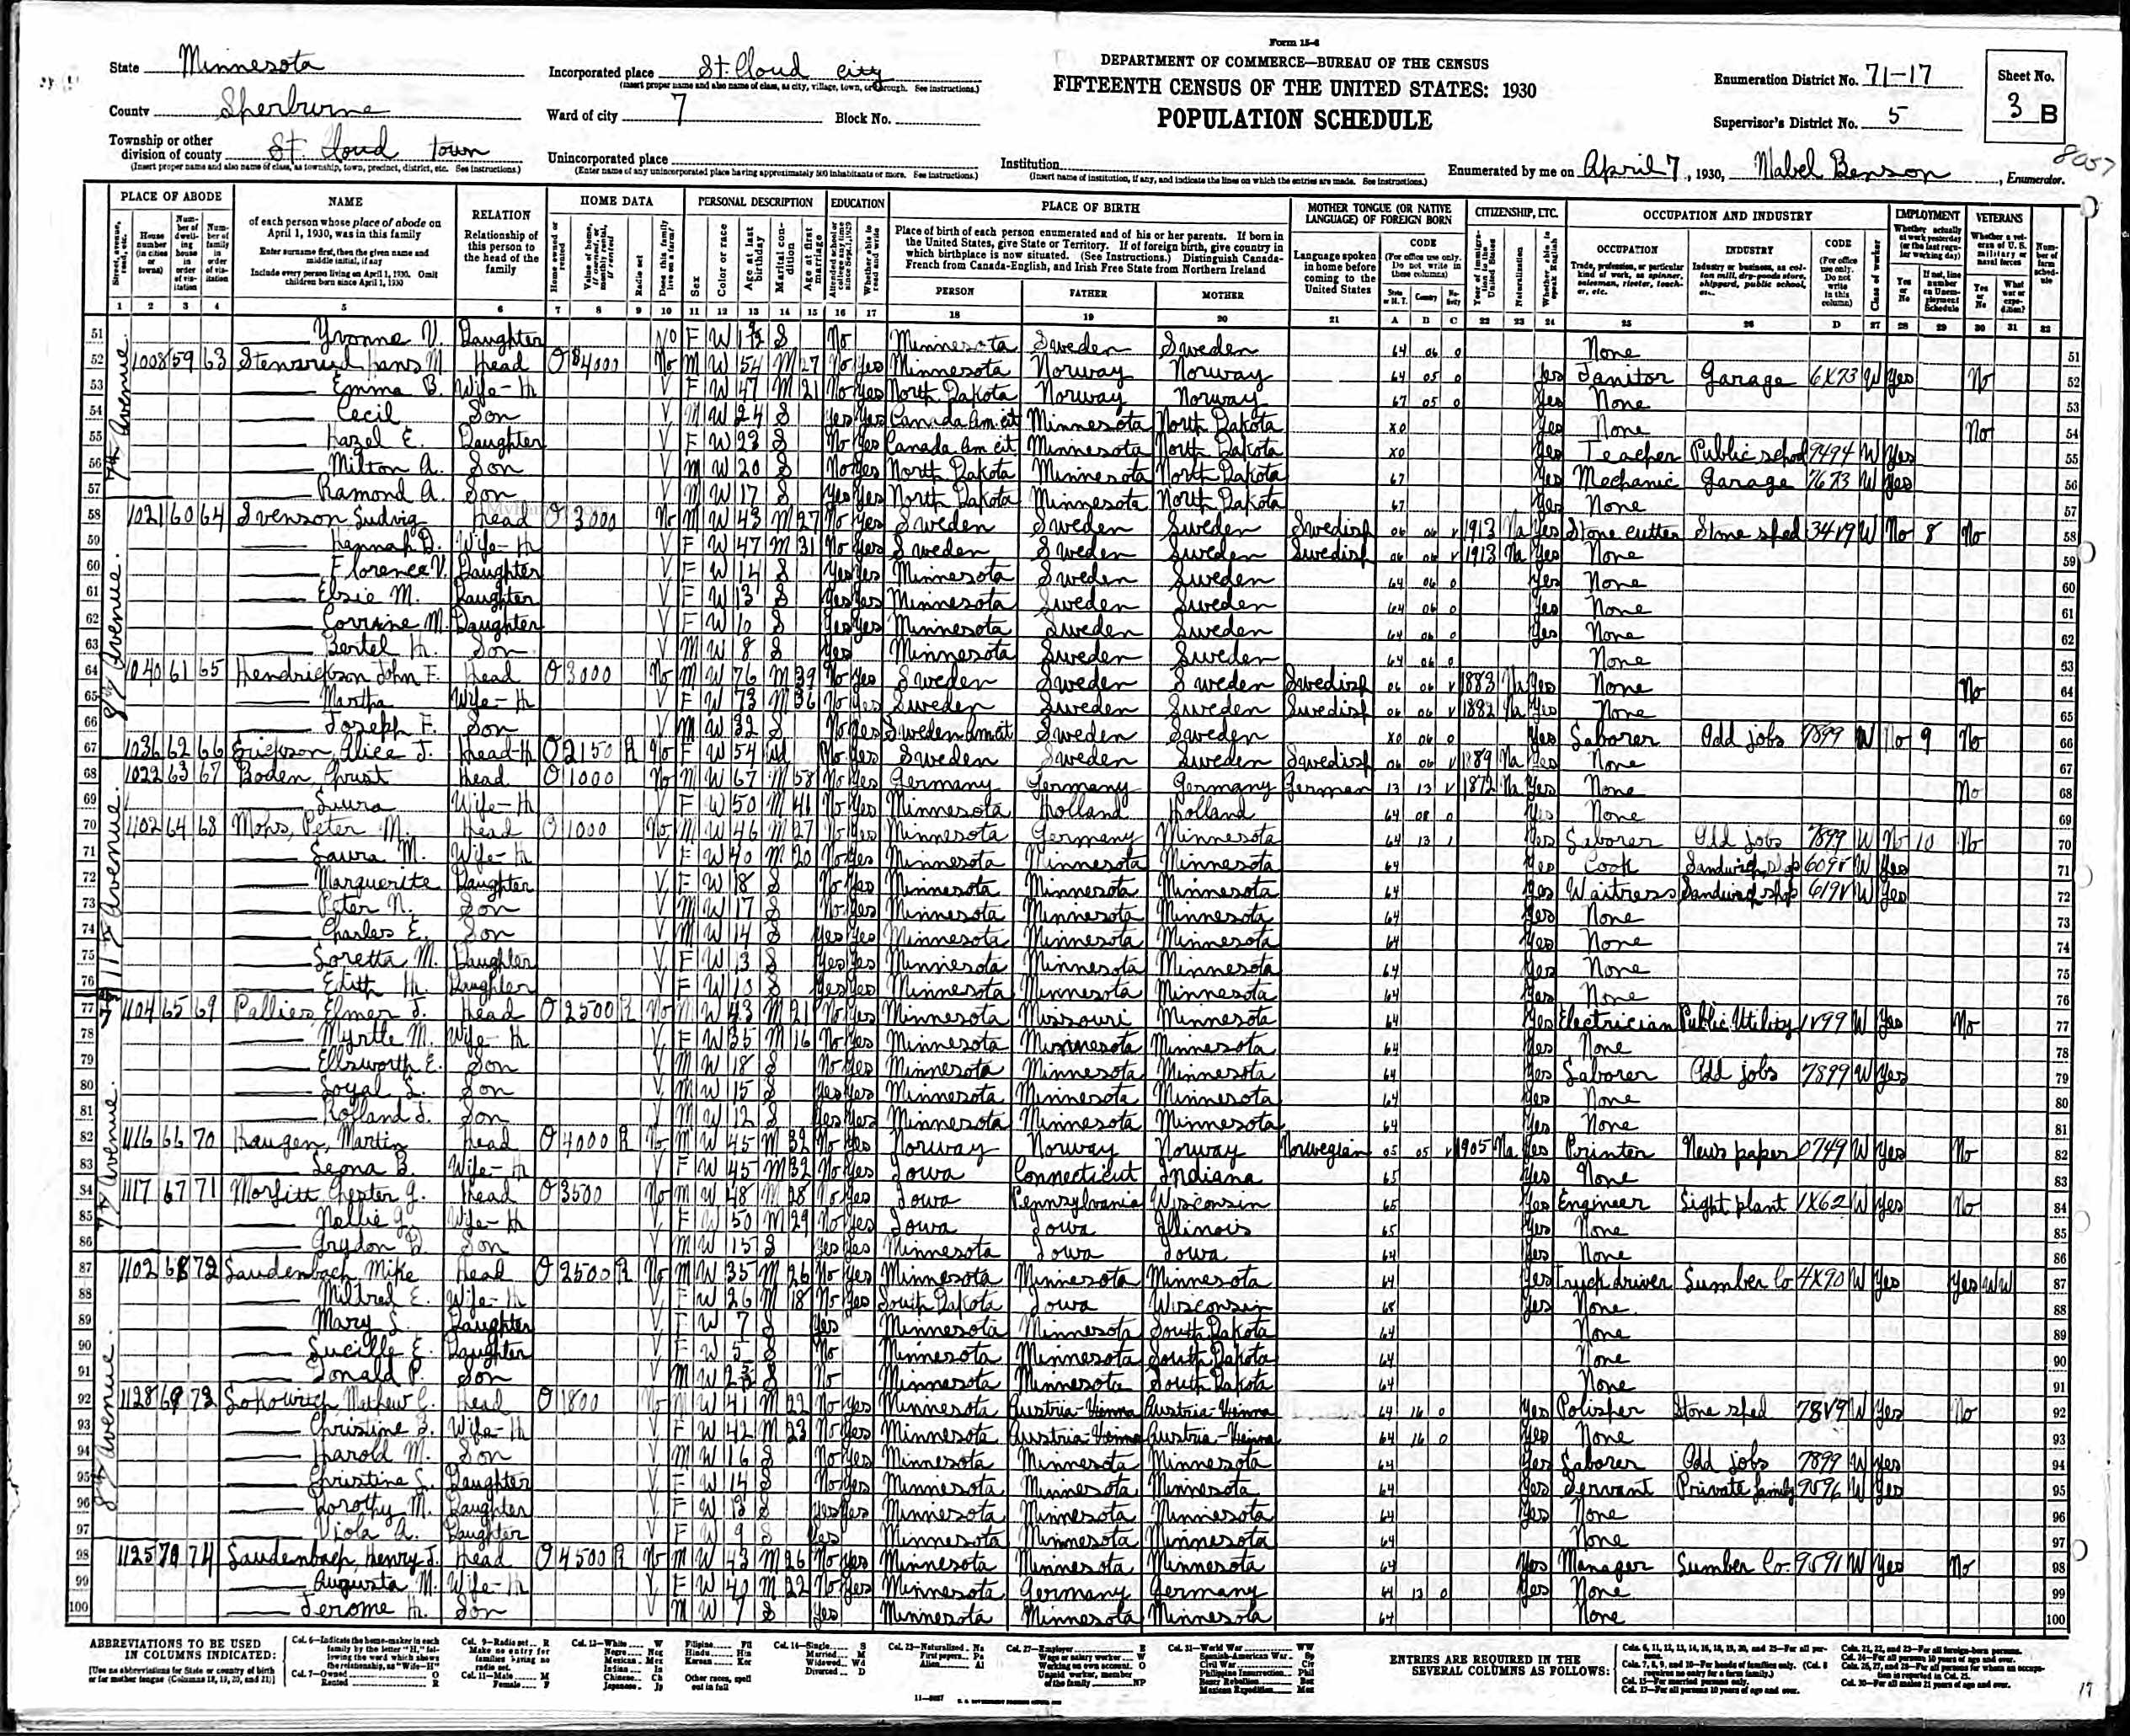 Form 15-6
State Minnesota
Incorporated place St. Cloud city
(Insert proper name and also name of class, as city, village, town, or borough. See instructions.)
DEPARTMENT OF COMMERCE—BUREAU OF THE CENSUS
FIFTEENTH CENSUS OF THE UNITED STATES: 1930
POPULATION SCHEDULE
Enumeration District No. 71-17
Sheet No.
3 B
County Sherburne
Ward of city 7 Block No.
Supervisor's District No. 5
Township or other division of county St. Cloud town
(Insert proper name and also name of class, as township, town, precinct, district, etc. See instructions.)
Unincorporated place
(Enter name of any unincorporated place having approximately 500 inhabitants or more. See instructions.)
Institution
(Insert name of institution, if any, and indicate the lines on which the entries are made. See instructions.)
Enumerated by me on April 7, 1930, Mabel Benson, Enumerator.
8057
PLACE OF ABODE NAME RELATION HOME DATA PERSONAL DESCRIPTION EDUCATION PLACE OF BIRTH MOTHER TONGUE (OR NATIVE LANGUAGE) OF FOREIGN BORN CITIZENSHIP, ETC. OCCUPATION AND INDUSTRY EMPLOYMENT VETERANS
of each person whose place of abode on April 1, 1930, was in this family
Enter surname first, then the given name and middle initial, if any
Include every person living on April 1, 1930. Omit children born since April 1, 1930
Relationship of this person to the head of the family
Place of birth of each person enumerated and of his or her parents. If born in the United States, give State or Territory. If of foreign birth, give country in which birthplace is now situated. (See Instructions.) Distinguish Canada-French from Canada-English, and Irish Free State from Northern Ireland
PERSON FATHER MOTHER
Language spoken in home before coming to the United States
OCCUPATION INDUSTRY CODE
51 Yvonne V. Daughter No F W S No Minnesota Sweden Sweden 64 06 0 None 51
52 1008 59 63 Hans M. Head O 4000 No M W 54 M 27 No Yes Minnesota Norway Norway 64 05 0 Yes Janitor Garage 6X73 W Yes No 52
53 Emma B. Wife-H V F W 47 M 21 No Yes North Dakota Norway Norway 67 05 0 Yes None 53
54 Cecil Son V M W 24 S Yes Yes Canada Am. cit Minnesota North Dakota X0 Yes None No 54
55 Hazel E. Daughter V F W 23 S No Yes Canada Am cit Minnesota North Dakota X0 Yes Teacher Public school 9494 W Yes 55
56 Milton A. Son V M W 20 S No Yes North Dakota Minnesota North Dakota 67 Yes Mechanic Garage 7673 W Yes 56
57 Ramond A. Son V M W 17 S Yes Yes North Dakota Minnesota North Dakota 67 Yes None 57
58 1021 60 64 Svenson, Ludvig Head O 3000 No M W 43 M 27 No Yes Sweden Sweden Sweden Swedish 06 06 V 1913 Na Yes Stone cutter Stone shed 34V9 W No 8 No 58
59 Hannah D. Wife-H V F W 47 M 31 No Yes Sweden Sweden Sweden Swedish 06 06 V 1913 Na Yes None 59
60 Florence V. Daughter V F W 14 S Yes Yes Minnesota Sweden Sweden 64 06 0 Yes None 60
61 Elsie M. Daughter V F W 13 S Yes Yes Minnesota Sweden Sweden 64 06 0 Yes None 61
62 Corrine M. Daughter V F W 10 S Yes Yes Minnesota Sweden Sweden 64 06 0 Yes None 62
63 Bertel H. Son V M W 8 S Yes Minnesota Sweden Sweden 64 06 0 None 63
64 1040 61 65 Hendrickson John F. Head O 3000 No M W 76 M 39 No Yes Sweden Sweden Sweden Swedish 06 06 V 1883 Na Yes None No 64
65 Martha Wife-H V F W 73 M 36 No Yes Sweden Sweden Sweden Swedish 06 06 V 1882 Na Yes None 65
66 Joseph F. Son V M W 32 S No Yes Sweden Am cit Sweden Sweden X0 06 0 Yes Laborer Odd jobs 7899 W No 9 No 66
67 1036 62 66 Erickson, Alice J. Head-H O 2150 R No F W 54 Wd No Yes Sweden Sweden Sweden Swedish 06 06 V 1889 Na Yes None 67
68 1022 63 67 Boden, Christ Head O 1000 No M W 67 M 58 No Yes Germany Germany Germany German 13 13 V 1872 Na Yes None No 68
69 Laura Wife-H V F W 50 M 41 No Yes Minnesota Holland Holland 64 08 0 Yes None 69
70 1102 64 68 Mohs, Peter M. Head O 1000 No M W 46 M 27 No Yes Minnesota Germany Minnesota 64 13 1 Yes Laborer Odd jobs 7899 W No 10 No 70
71 Laura M. Wife-H V F W 40 M 20 No Yes Minnesota Minnesota Minnesota 64 Yes Cook Sandwich shop 609V W Yes 71
72 Marguerite Daughter V F W 18 S No Yes Minnesota Minnesota Minnesota 64 Yes Waitress Sandwich shop 619V W Yes 72
73 Peter N. Son V M W 17 S No Yes Minnesota Minnesota Minnesota 64 Yes None 73
74 Charles E. Son V M W 14 S Yes Yes Minnesota Minnesota Minnesota 64 Yes None 74
75 Loretta M. Daughter V F W 13 S Yes Yes Minnesota Minnesota Minnesota 64 Yes None 75
76 Edith M. Daughter V F W 10 S Yes Yes Minnesota Minnesota Minnesota 64 Yes None 76
77 1104 65 69 Pallies, Elmer J. Head O 2500 R No M W 43 M 21 No Yes Minnesota Missouri Minnesota 64 Yes Electrician Public Utility 1V99 W Yes No 77
78 Myrtle M. Wife-H V F W 35 M 16 No Yes Minnesota Minnesota Minnesota 64 Yes None 78
79 Ellsworth E. Son V M W 18 S No Yes Minnesota Minnesota Minnesota 64 Yes Laborer Odd jobs 7899 W Yes 79
80 Loyal L. Son V M W 15 S Yes Yes Minnesota Minnesota Minnesota 64 Yes None 80
81 Rolland J. Son V M W 12 S Yes Yes Minnesota Minnesota Minnesota 64 Yes None 81
82 1116 66 70 Haugen, Martin Head O 4000 R No M W 45 M 32 No Yes Norway Norway Norway Norwegian 05 05 V 1905 Na Yes Printer News paper 0749 W Yes No 82
83 Leona B. Wife-H V F W 45 M 32 No Yes Iowa Connecticut Indiana 65 Yes None 83
84 1117 67 71 Morfitt Chester G. Head O 3500 No M W 48 M 28 No Yes Iowa Pennsylvania Wisconsin 65 Yes Engineer Light plant VX62 W Yes No 84
85 Nellie G. Wife-H V F W 50 M 29 No Yes Iowa Iowa Illinois 65 Yes None 85
86 Grydon D. Son V M W 15 S Yes Yes Minnesota Iowa Iowa 64 Yes None 86
87 1102 68 72 Laudenbach Mike Head O 2500 R No M W 35 M 26 No Yes Minnesota Minnesota Minnesota 64 Yes Truck driver Lumber Co 4X90 W Yes Yes WW 87
88 Mildred E. Wife-H V F W 26 M 18 No Yes South Dakota Iowa Wisconsin 68 Yes None 88
89 Mary L. Daughter V F W 7 S Yes Minnesota Minnesota South Dakota 64 None 89
90 Lucille E. Daughter V F W 5 S No Minnesota Minnesota South Dakota 64 None 90
91 Donald P. Son V M W S No Minnesota Minnesota South Dakota 64 None 91
92 1128 69 73 Sokowich, Mathew C. Head O 1800 No M W 41 M 22 No Yes Minnesota Austria-Vienna Austria-Vienna 64 16 0 Yes Polisher Stone shed 78V9 W Yes No 92
93 Christine B. Wife-H V F W 42 M 23 No Yes Minnesota Austria-Vienna Austria-Vienna 64 16 0 Yes None 93
94 Harold M. Son V M W 16 S No Yes Minnesota Minnesota Minnesota 64 Yes Laborer Odd jobs 7899 W Yes 94
95 Christine L. Daughter V F W 14 S No Yes Minnesota Minnesota Minnesota 64 Yes Servant Private family 9596 W Yes 95
96 Dorothy M. Daughter V F W 13 S Yes Yes Minnesota Minnesota Minnesota 64 Yes None 96
97 Viola A. Daughter V F W 9 S Yes Minnesota Minnesota Minnesota 64 None 97
98 1125 70 74 Laudenbach, Henry J. Head O 4500 R No M W 43 M 26 No Yes Minnesota Minnesota Minnesota 64 Yes Manager Lumber Co. 9591 W Yes No 98
99 Augusta M. Wife-H V F W 40 M 22 No Yes Minnesota Germany Germany 64 13 0 Yes None 99
100 Jerome H. Son V M W 7 S Yes Minnesota Minnesota Minnesota 64 None 100
ABBREVIATIONS TO BE USED IN COLUMNS INDICATED:
ENTRIES ARE REQUIRED IN THE SEVERAL COLUMNS AS FOLLOWS: